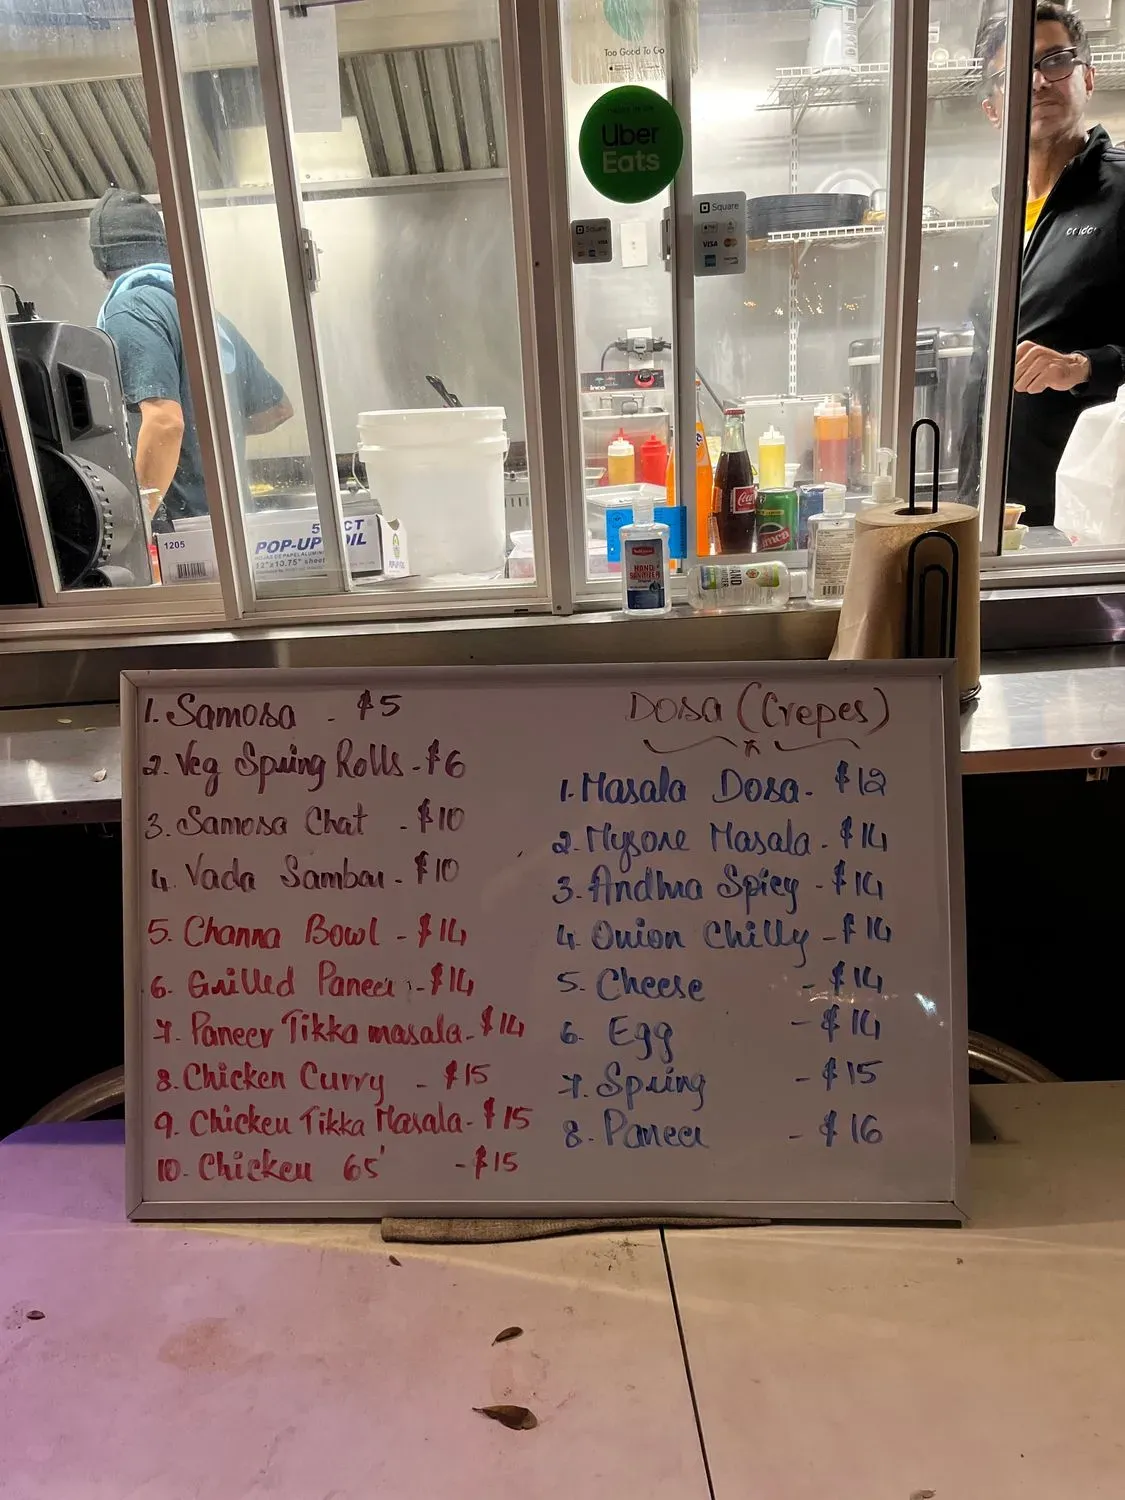 Too Good To Go
Uber
Eats
Square
VISA
Square
VISA
inco
Coca-Cola
1205
POP-UP
12"x10.75" sheets
HAND
SANITIZER
1. Samosa - $5
2. Veg Spring Rolls - $6
3. Samosa Chat - $10
4. Vada Sambar - $10
5. Channa Bowl - $14
6. Grilled Paneer - $14
7. Paneer Tikka masala - $14
8. Chicken Curry - $15
9. Chicken Tikka Masala - $15
10. Chicken 65' - $15
Dosa (Crepes)
1. Masala Dosa - $12
2. Mysore Masala - $14
3. Andhra Spicy - $14
4. Onion Chilly - $14
5. Cheese - $14
6. Egg - $14
7. Spring - $15
8. Paneer - $16